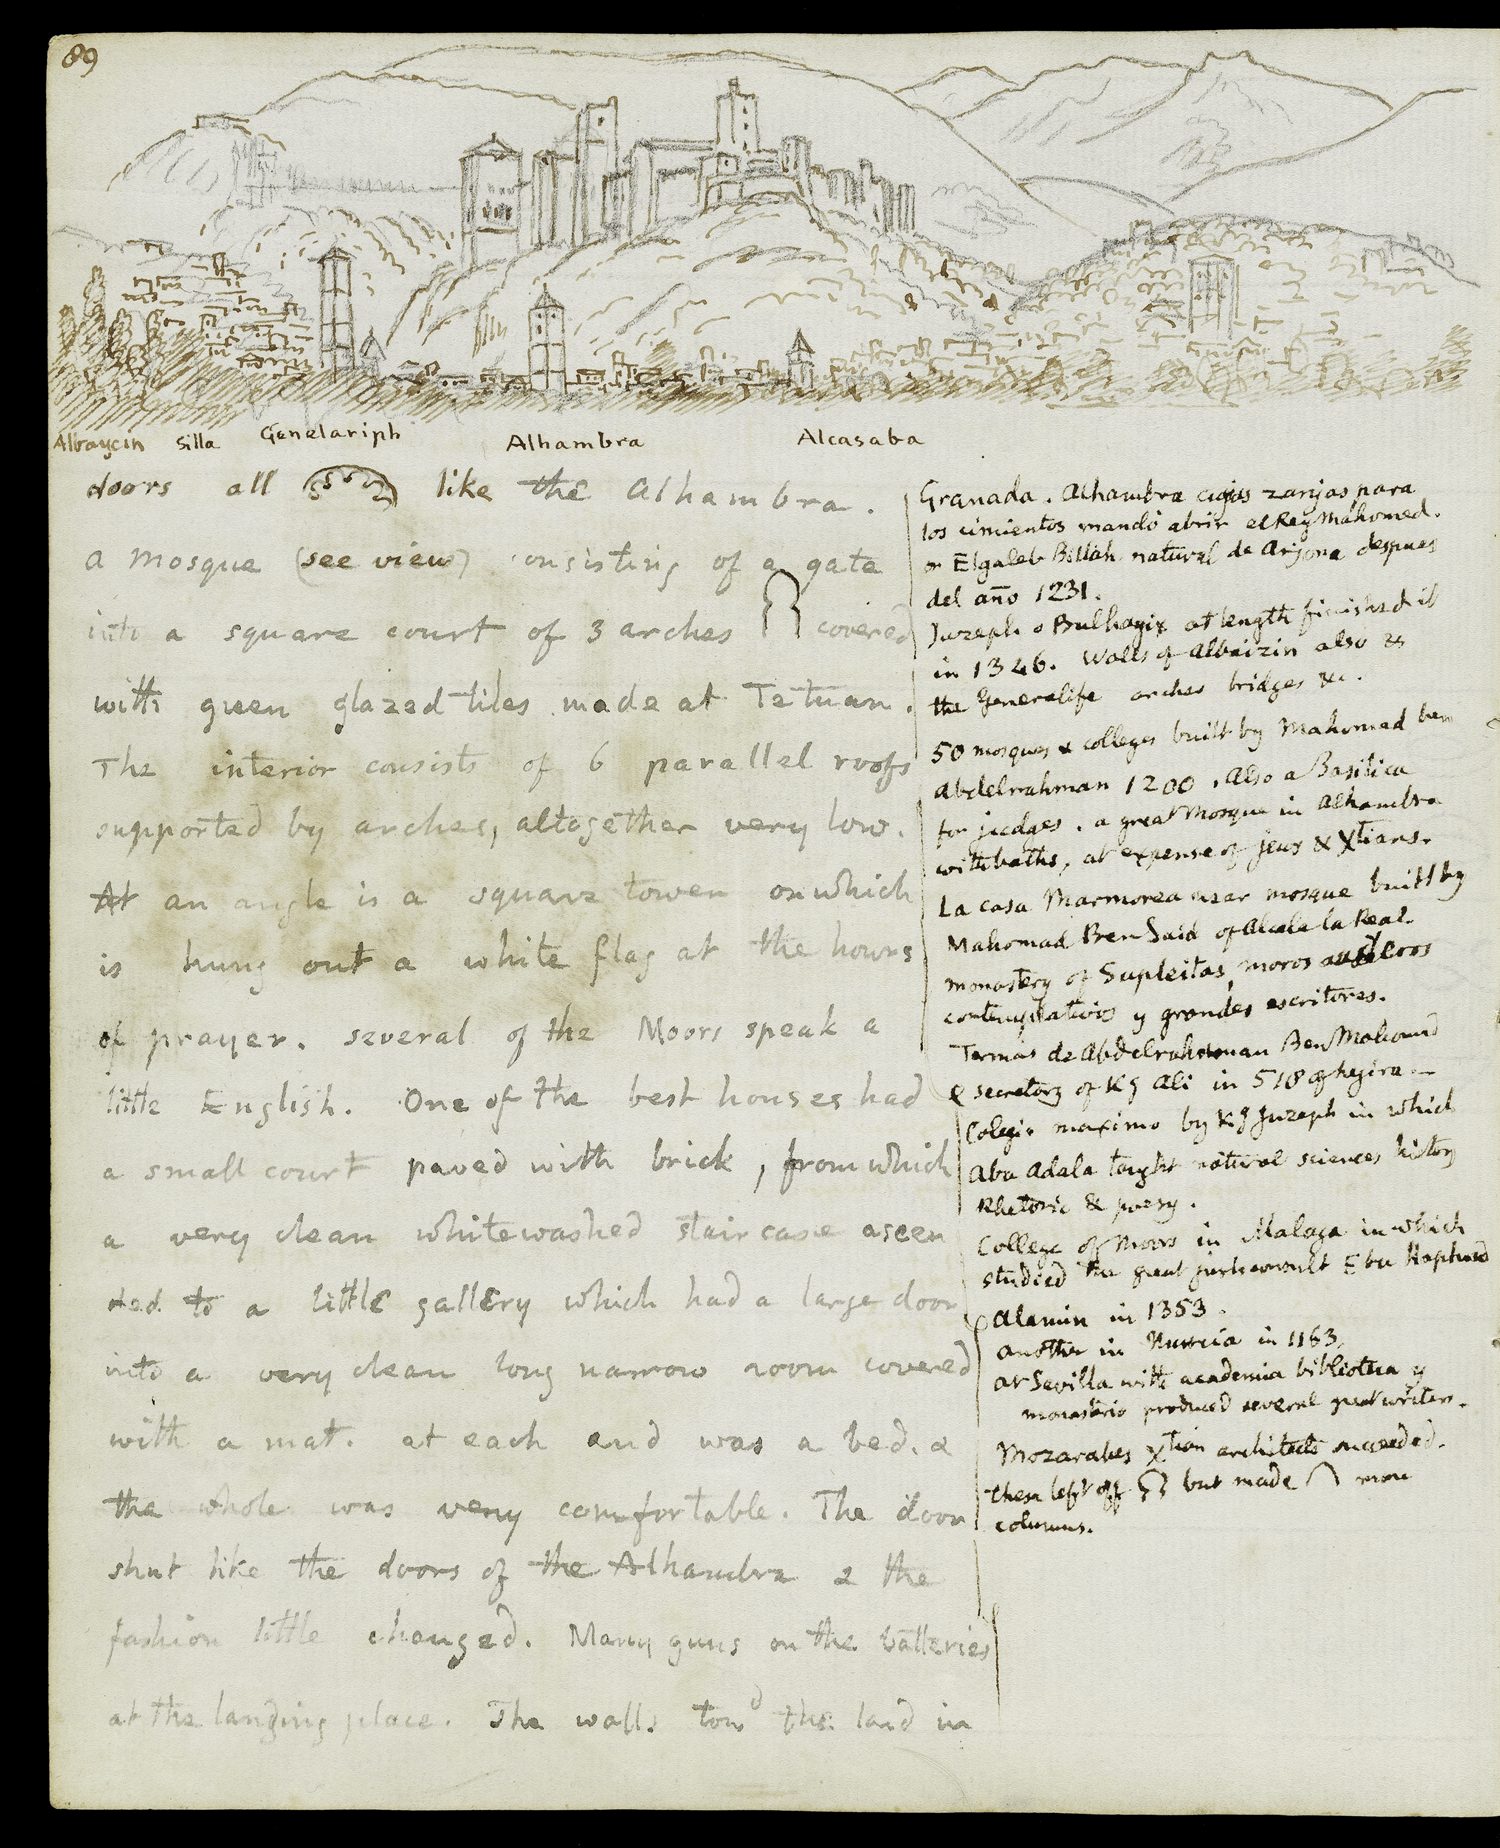 89
Albaycin Silla Genelariph Alhambra Alcasaba
doors all like the Alhambra.
A Mosque (see view) consisting of a gate
into a square court of 3 arches covered
with green glazed tiles made at Tetuan.
The interior consists of 6 parallel roofs
supported by arches, altogether very low.
At an angle is a square tower on which
is hung out a white flag at the hours
of prayer. Several of the Moors speak a
little English. One of the best houses had
a small court paved with brick, from which
a very clean whitewashed staircase ascen
ded to a little gallery which had a large door
into a very clean long narrow room covered
with a mat. at each end was a bed. &
the whole was very comfortable. The door
shut like the doors of the Alhambra & the
fashion little changed. Many guns on the batteries
at the landing place. The walls tow^d the land in
Granada. Alhambra cujas zanjas para
los cimientos mandó abrir el Rey Mahomed.
on Elgaleb Billah natural de Arjona despues
del año 1231.
Juzeph o Bulhagix at length finished it
in 1346. Walls of Albaizin also as
the Generalife arches bridges &c.
50 mosques & colleges built by Mahomad ben
Abdelrahman 1200. Also a Basilica
for judges. a great Mosque in Alhambra
with baths, at expense of jews & Xtians.
La casa Marmorea near mosque built by
Mahomad Ben Said of Alcala la Real.
Monastery of Supleitas, moros austeros
contemplativos y grandes escritores.
Termas de Abdelrahman Ben Mahomad
& secretary of Kg Ali in 518 of hegira—
Colegio maximo by Kg Juzeph in which
Abu Adala taught natural sciences history
Rhetoric & poesy.
College of Moors in Malaga in which
studied the great jurisconsult Ebu
Alamin in 1353.
another in Murcia in 1163,
at Sevilla with academia biblioteca y
monasterio produced several great writers.
Mozarabes Xtian architects succeeded.
these left off but made more
columns.